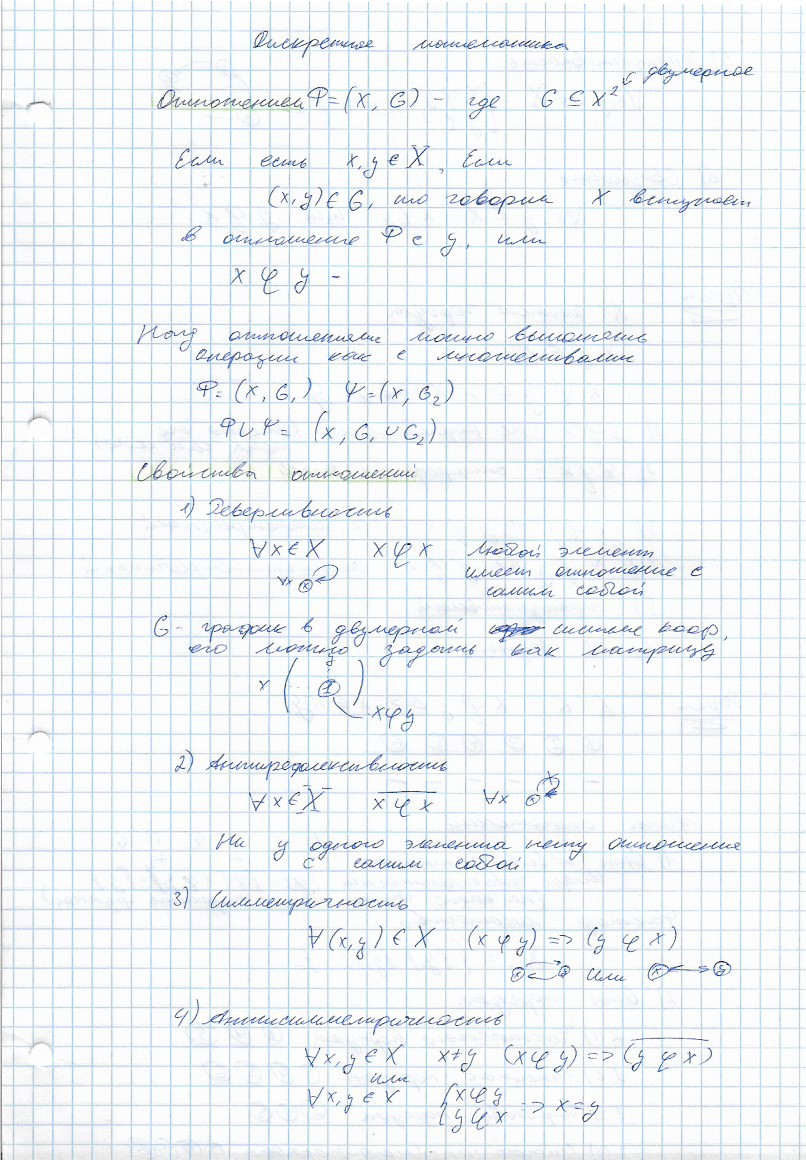 Дискретное математика
двумерное
Отношением Φ=(X, G) – где G ⊆ X²
Если есть x, y ∈ X, Если
(x, y) ∈ G, то говорим X вступает
в отношение Φ с y, или
x φ y –
Над отношениями можно выполнять
операции как с множествами
Φ= (X, G₁) Ψ=(X, G₂)
Φ∪Ψ= (X, G₁ ∪ G₂)
Свойства отношений
1)
∀x∈X x φ x любой элемент
∀x x имеет отношение с
самим собой
G – график в двумерной системе коор,
его можно задать как матрицу
y
x ( 1 )
xφy
2) Антирефлексивность
∀x∈X x̅ ̅φ̅ ̅x̅ ∀x x
Ни у одного элемента нету отношения
с самим собой
3) Симметричность
∀(x,y) ∈ X (x φ y) => (y φ x)
x y или x y
4) Антисимметричность
∀x, y ∈ X x≠y (xφy) => (y̅ ̅φ̅ ̅x̅)
или
∀x, y ∈ X { xφy
yφx => x=y